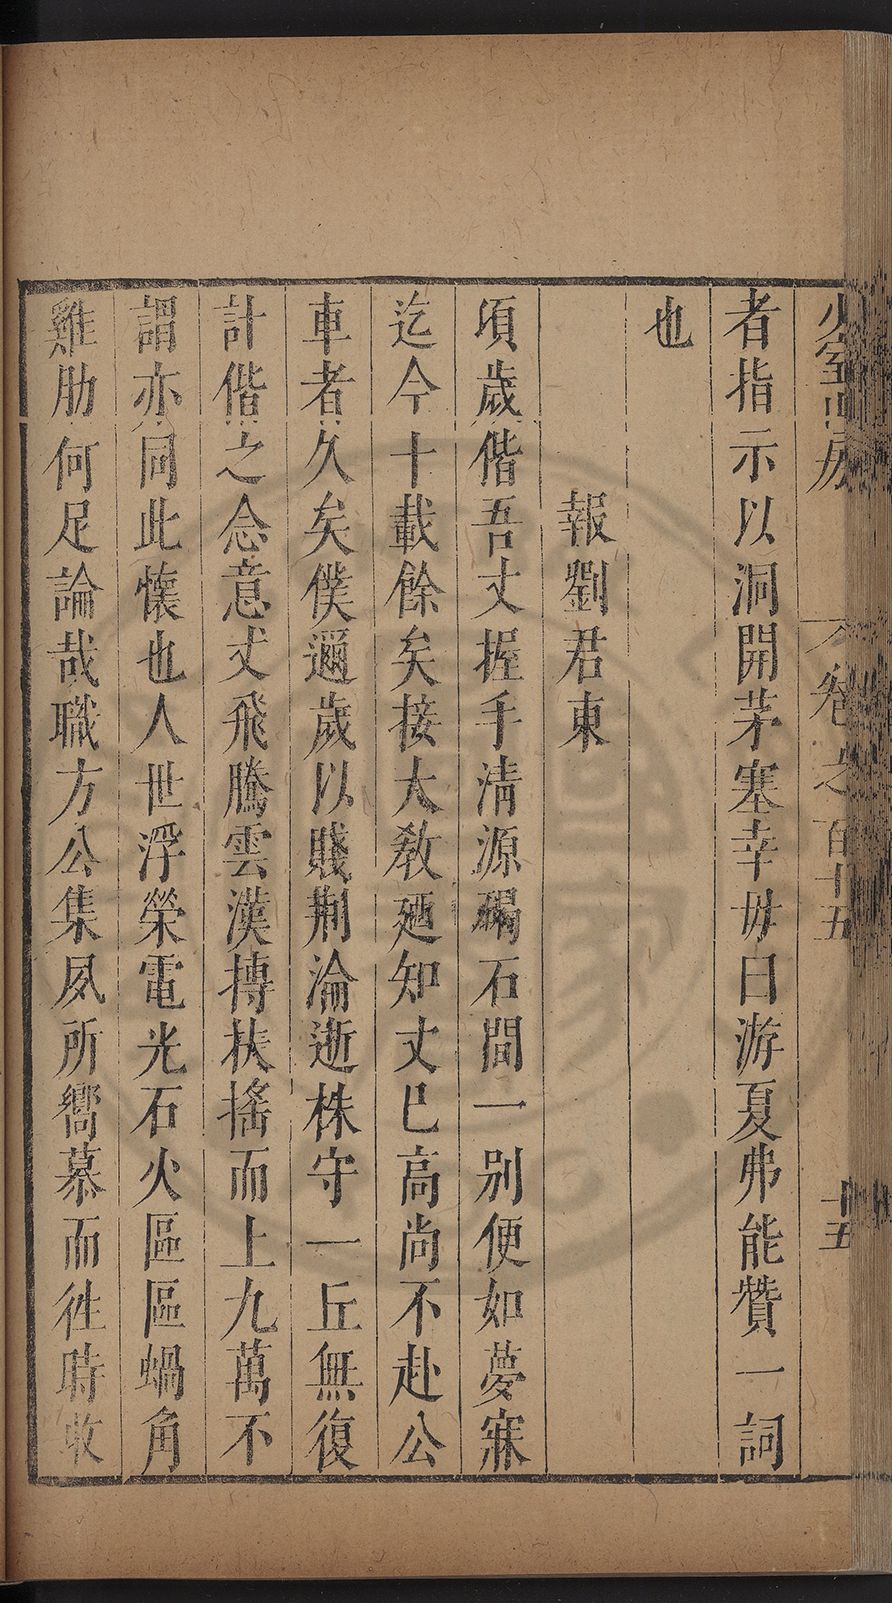 少室山房
卷之百十五
十五
者指示以洞開茅塞幸毋曰游夏弗能贊一詞
也
報劉君東
頃歲偕吾丈握手清源碣石間一别便如夢寐
迄今十載餘矣接大敎廼知丈已高尚不赴公
車者久矣僕邇歲以賤荆淪逝株守一丘無復
計偕之念意丈飛騰雲漢摶扶搖而上九萬不
謂亦同此懷也人世浮榮電光石火區區蝸角
雞肋何足論哉職方公集夙所嚮慕而徃時收